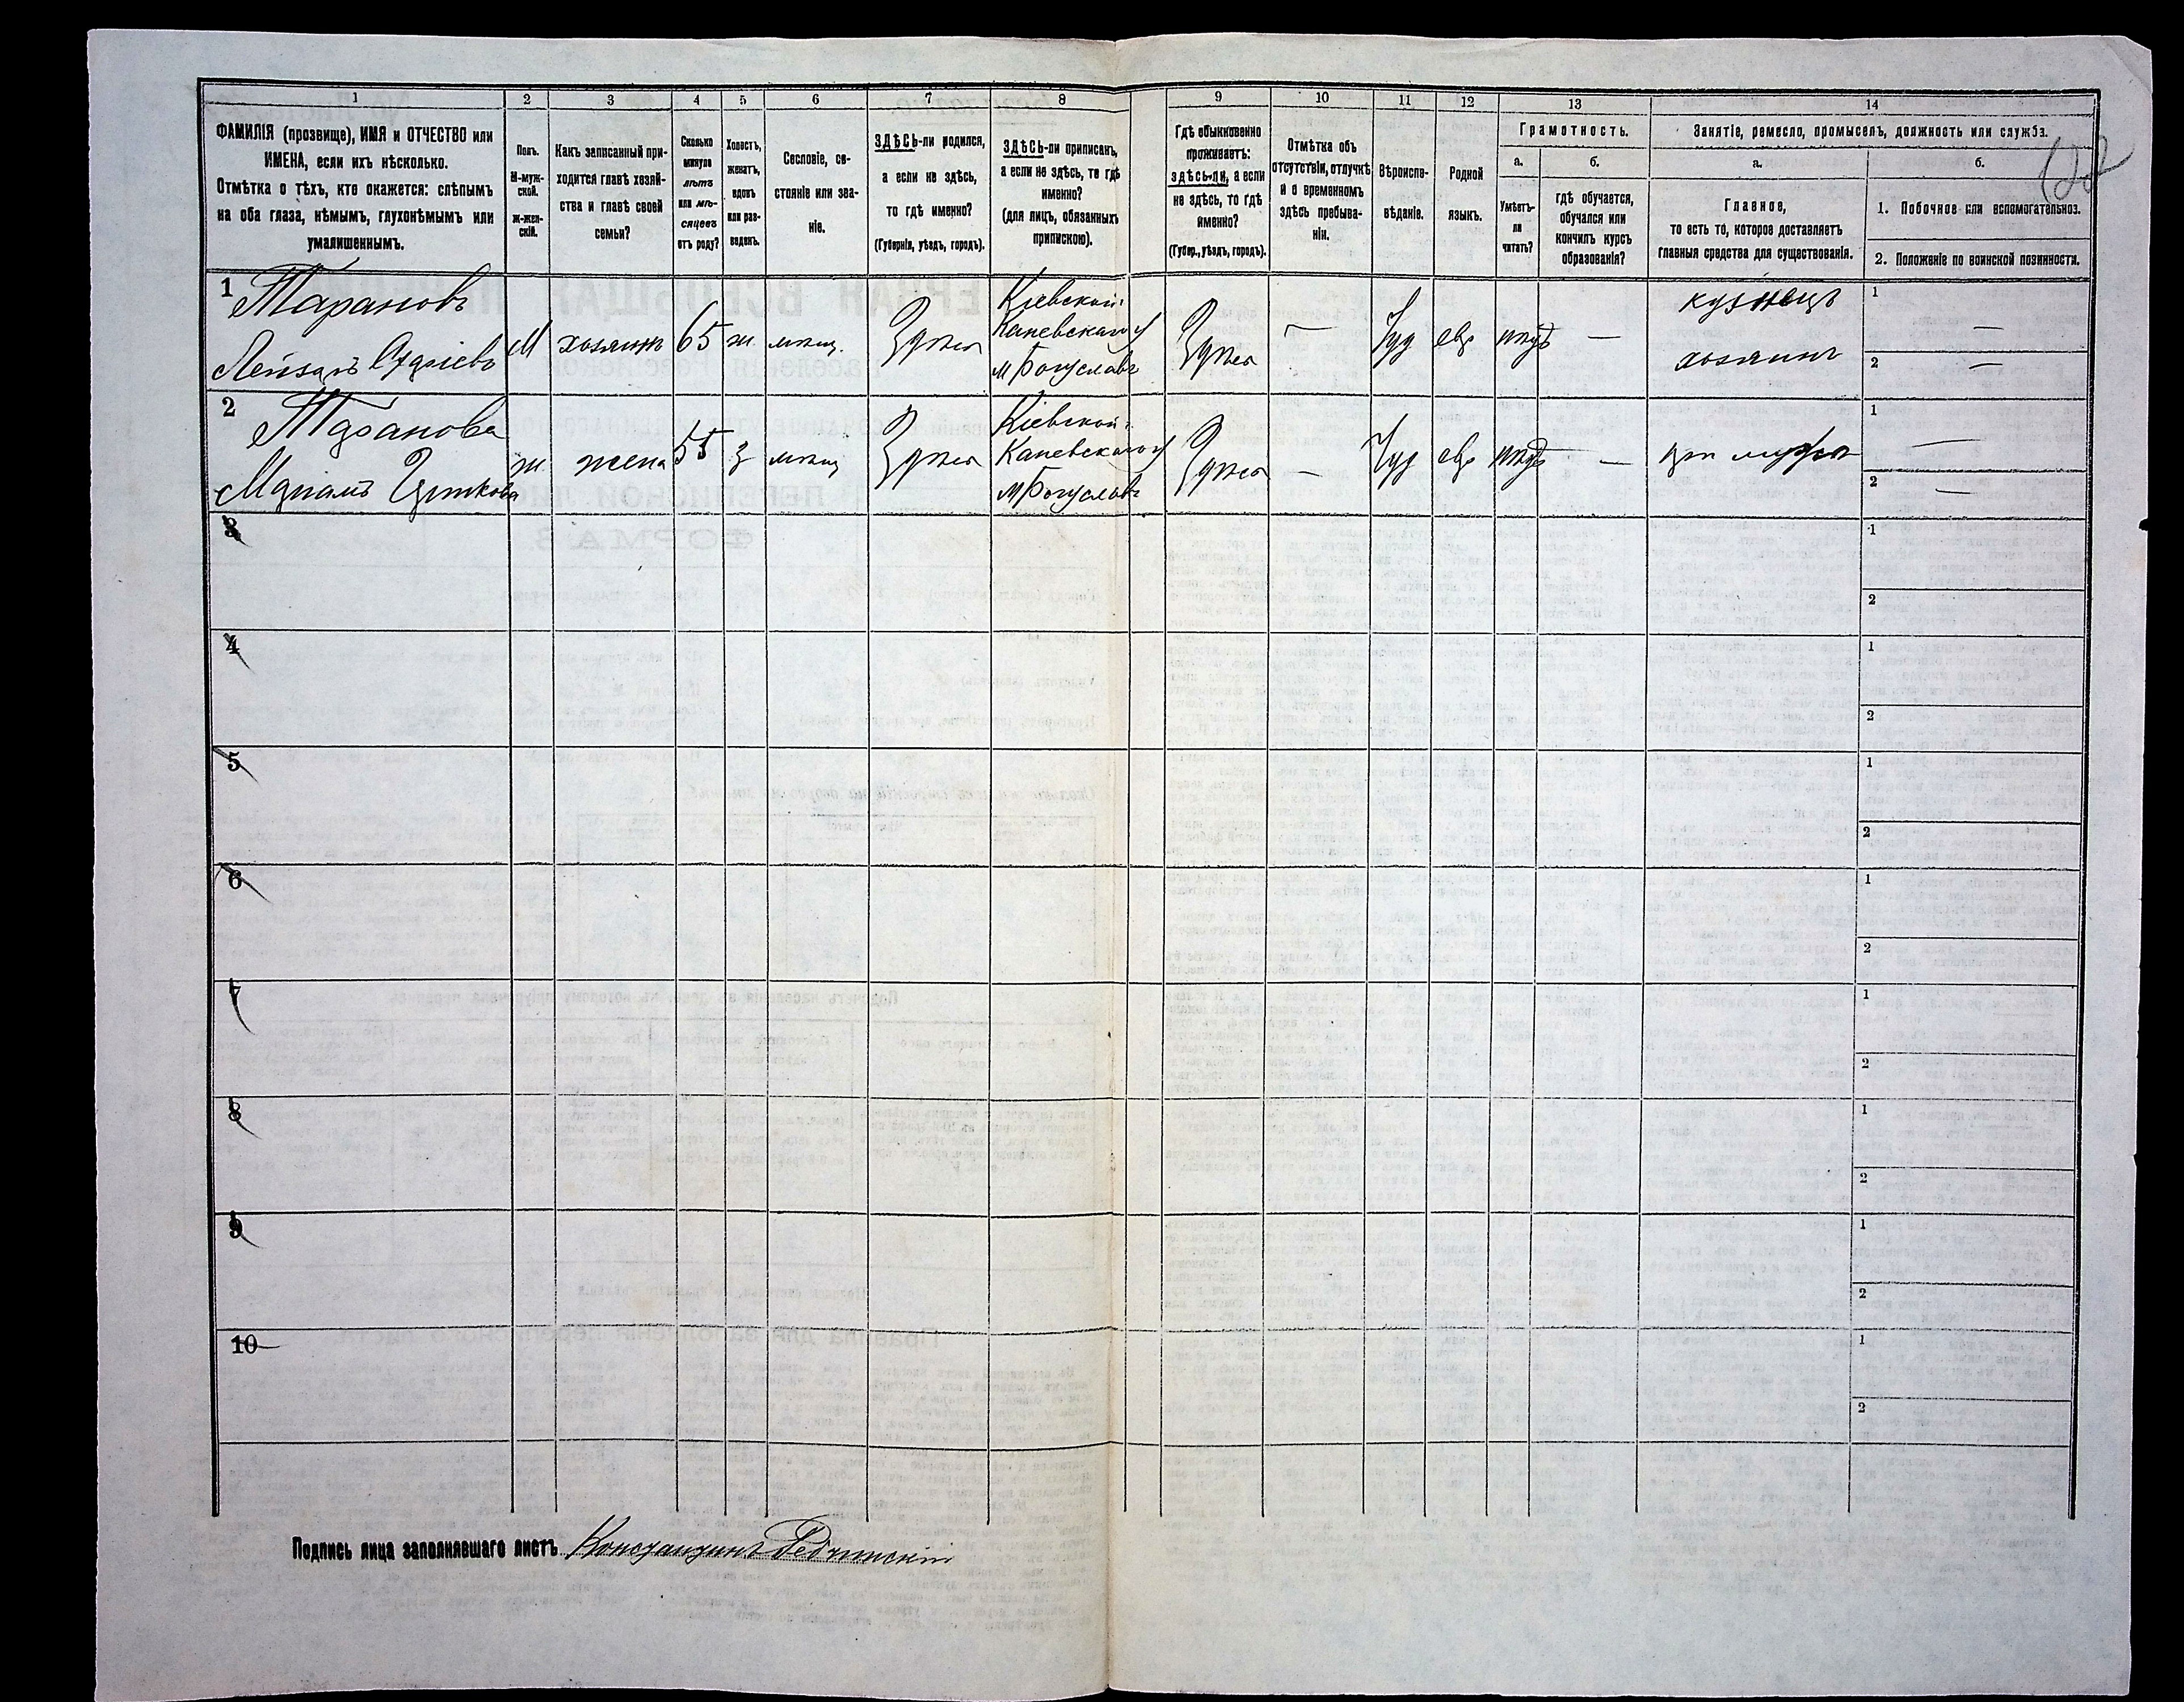 1 2 3 4 5 6 7 8 9 10 11 12 13 14
ФАМИЛІЯ (прозвище), ИМЯ и ОТЧЕСТВО или
ИМЕНА, если ихъ нѣсколько.
Отмѣтка о тѣхъ, кто окажется: слѣпымъ
на оба глаза, нѣмымъ, глухонѣмымъ или
умалишеннымъ.
Полъ.
М-муж-
ской.
Ж-жен-
скій.
Какъ записанный при-
ходится главѣ хозяй-
ства и главѣ своей
семьи?
Сколько
минуло
лѣтъ
или мѣ-
сяцевъ
отъ роду?
Холостъ,
женатъ,
вдовъ
или раз-
веденъ.
Сословіе, со-
стояніе или зва-
ніе.
ЗДѢСЬ-ли родился,
а если не здѣсь,
то гдѣ именно?
(Губернія, уѣздъ, городъ).
ЗДѢСЬ-ли приписанъ,
а если не здѣсь, то гдѣ
именно?
(для лицъ, обязанныхъ
припискою).
Гдѣ обыкновенно
проживаетъ:
здѣсь-ли, а если
не здѣсь, то гдѣ
именно?
(Губер., уѣздъ, городъ).
Отмѣтка объ
отсутствіи, отлучкѣ
и о временномъ
здѣсь пребыва-
ніи.
Вѣроиспо-
вѣданіе.
Родной
языкъ.
Грамотность.
а.
Умѣетъ-
ли
читать?
б.
гдѣ обучается,
обучался или
кончилъ курсъ
образованія?
Занятіе, ремесло, промыселъ, должность или служба.
а.
Главное,
то есть то, которое доставляетъ
главныя средства для существованія.
б.
1. Побочное или вспомогательное.
2. Положеніе по воинской повинности.
1 Тарановъ
М хозяинъ 65 ж мѣщ. Здѣсь
Кіевской
Каневскаго у
м Богуславъ
Здѣсь — Іуд евр —
кузнецъ
хозяинъ
1 —
2 —
2 Таранова
ж жена 55 з мѣщ Здѣсь
Кіевской
Каневскаго у
м Богуславъ
Здѣсь — Іуд евр — при мужѣ
1 —
2 —
3 1
2
4 1
2
5 1
2
6 1
2
7 1
2
8 1
2
9 1
2
10 1
2
Подпись лица заполнявшаго листъ Константинъ